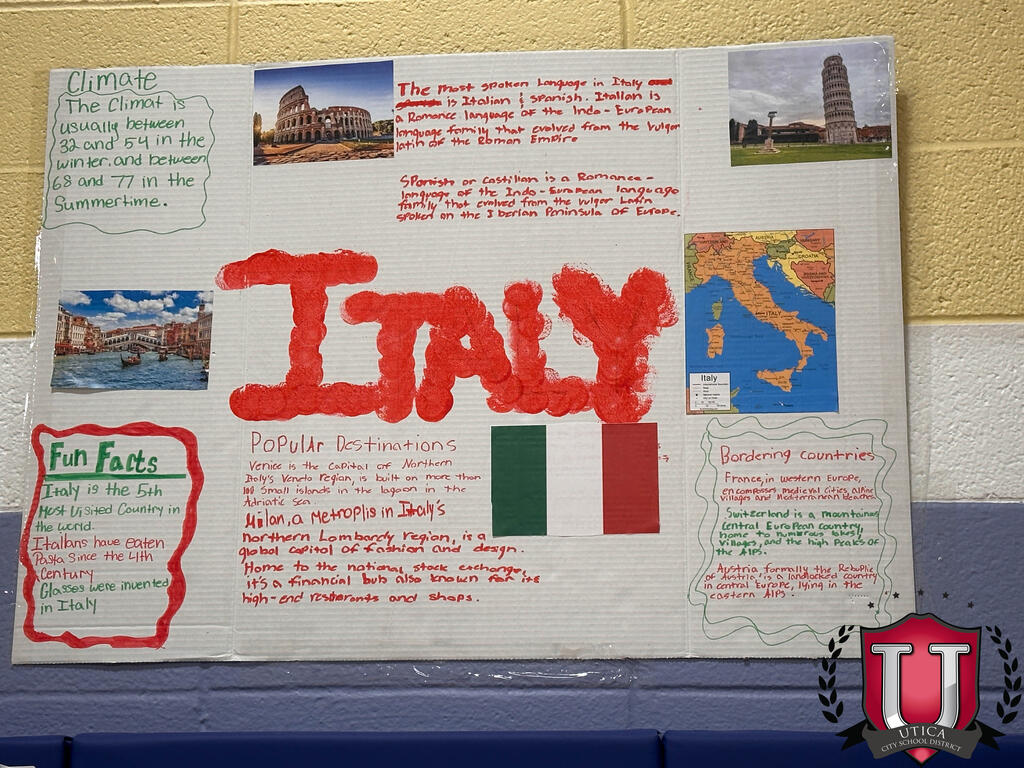 Climate
The Climat is
usually between
32 and 54 in the
winter. and between
68 and 77 in the
Summertime.
The most spoken Language in Italy
is Italian & Spanish. Itallan is
a Romance language of the Indo-European
language family that evolved from the vulgar
latin of the Roman Empire
Spanish or Castilian is a Romance-
language of the Indo-European language
family that evolved from the vulgar Latin
spoken on the Iberian Peninsula of Europe.
ITALY
AUSTRIA
CROATIA
ITALY
Italy
Fun Facts
Italy is the 5th
Most Visited Country in
the world.
Italians have eaten
Pasta Since the 4th
Century
Glasses were invented
in Italy
Popular Destinations
Venice is the capital of Northern
Italy's Veneto region, is built on more than
100 small islands in the lagoon in the
Adriatic sea
Milan, a Metroplis in Italy's
northern Lombardy region, is a
global capital of fashion and design.
Home to the national stock exchange,
it's a financial bub also known for its
high-end resterants and shops.
Bordering countries
France, in western Europe,
encompasses medieval cities, alpine
villages and Mediterranean beaches.
Switzerland is a mountainous
central European country,
home to numerous lakes,
villages, and the high Peaks of
the Alps.
Austria formally the Rebuplic
of Austria is a landlocked country
in central Europe, lying in the
eastern Alps.
U
UTICA
CITY SCHOOL DISTRICT